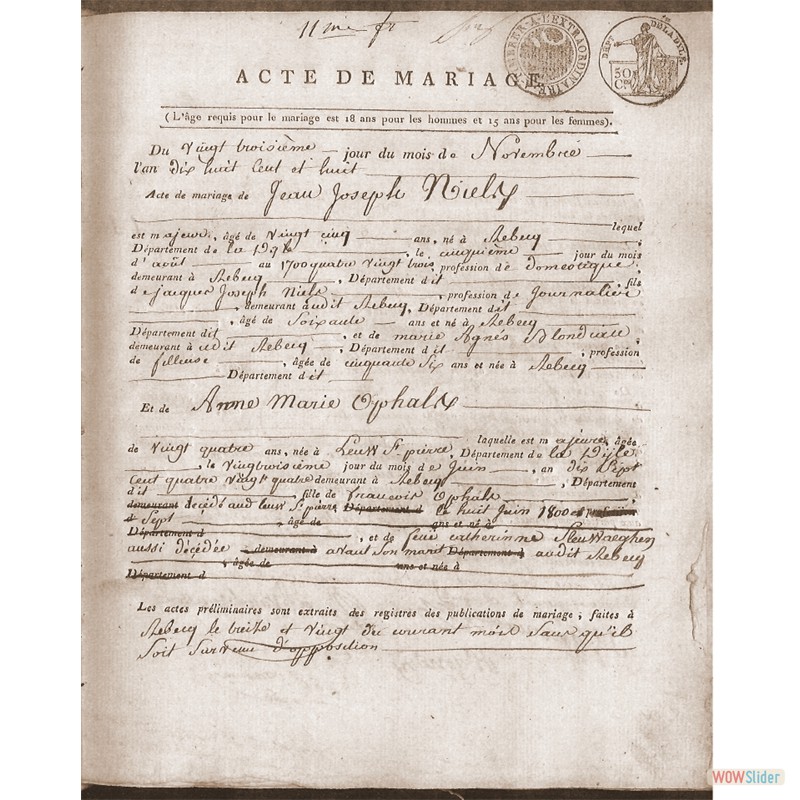 11 me ft
TIMBRER A L'EXTRAORDINAIRE
DEPT DE LA DYLE
50 CES
ACTE DE MARIAGE
(L'âge requis pour le mariage est 18 ans pour les hommes et 15 ans pour les femmes).
Du vingt troisième jour du mois de Novembre
l'an dix huit Cent et huit
Acte de mariage de Jean Joseph Niels
lequel
est majeur, âgé de vingt cinq ans, né à Rebecq
Département de la Dyle, le cinquième jour du mois
d'août au 1700 quatre vingt trois, profession de domestique,
demeurant à Rebecq, Département dit, fils
de jacques Joseph Niels, profession de Journalier
, demeurant audit Rebecq, Département dit
, âgé de Soixante ans et né à Rebecq
Département dit, et de marie Agnès Blondeau,
demeurant à audit Rebecq, Département dit, profession
de filleuse, âgée de cinquante Six ans et née à Rebecq
Département dit
Et de Anne Marie Ophals
laquelle est majeure, âgée
de vingt quatre ans, née à Leuw St pierre, Département de la Dijle
, le vingtroisième jour du mois de Juin, an dix Sept
Cent quatre vingt quatre demeurant à Rebecq, Département
dit, fille de francois Ophals
demeurant decédé aud leuw St pierre Département d le huit Juin 1800 et profession
d Sept âgé de ans et né à
Département d, et de feue catherinne Sleuwaeghen
aussi décédée demeurant à avant Son marit Département d audit Rebecq
, âgée de ans et née à
Département d
Les actes préliminaires sont extraits des registres des publications de mariage, faites à
Rebecq le treize et vingt du courant mois Sans qu'il
Soit Survenu d'opposition
WOWSlider